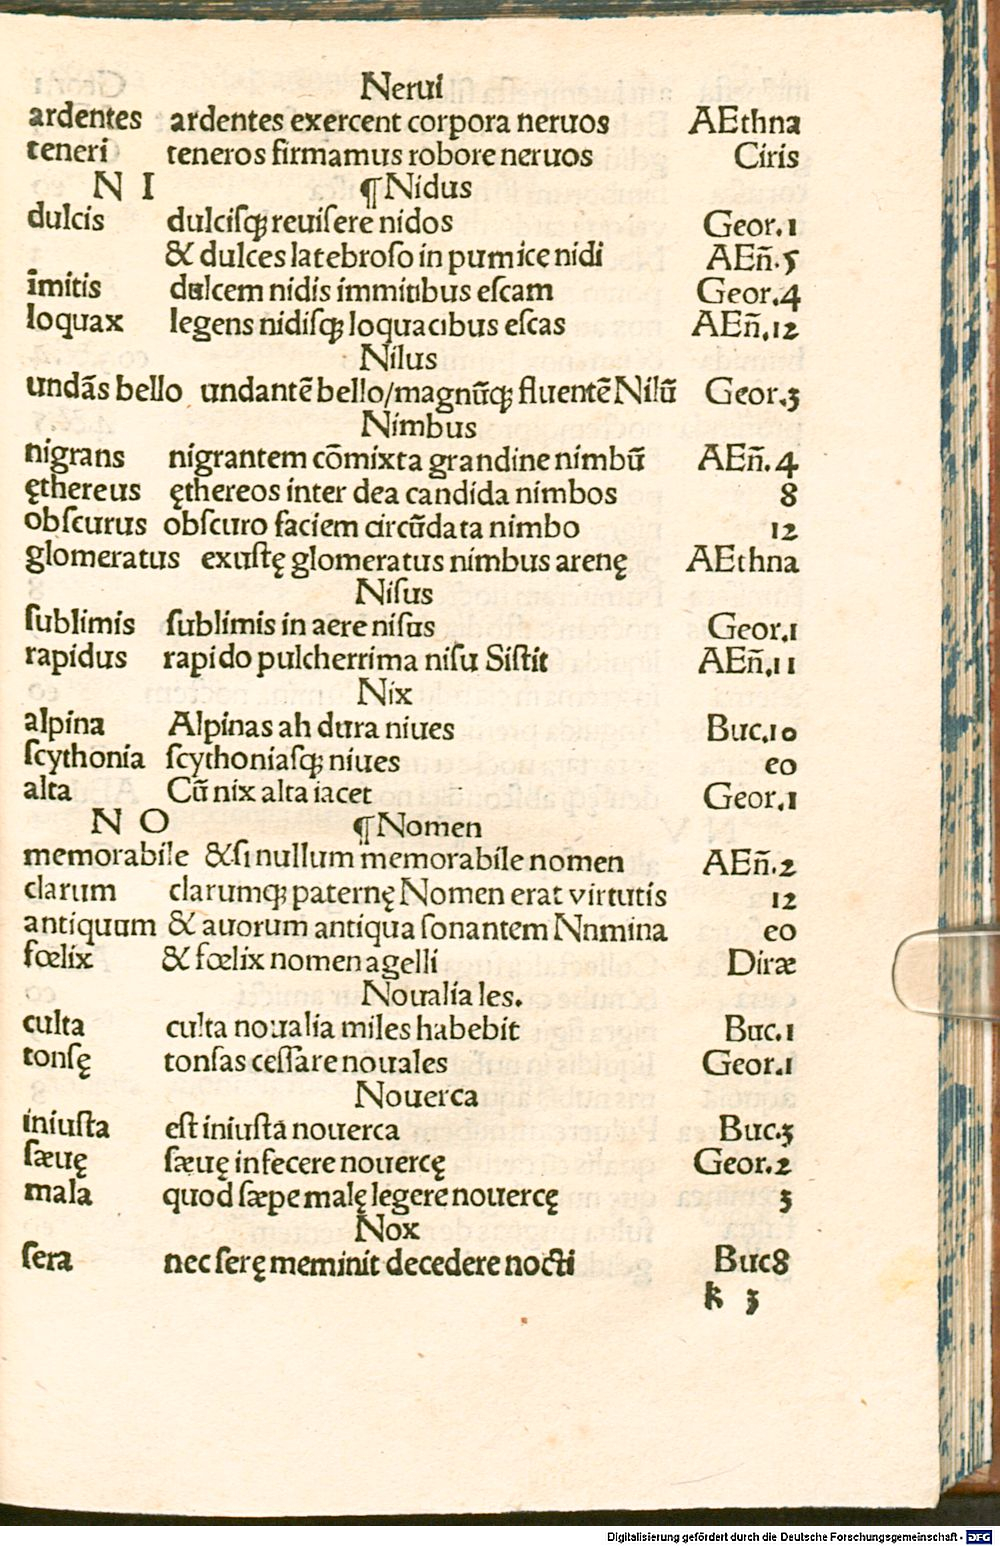 Nerui
ardentes ardentes exercent corpora neruos AEthna
teneri teneros firmamus robore neruos Ciris
N I ¶Nidus
dulcis dulciſqꝫ reuiſere nidos Geor.1
& dulces latebroſo in pumice nidi AEñ.5
imitis dulcem nidis immitibus eſcam Geor.4
loquax legens nidiſqꝫ loquacibus eſcas AEñ.12
Nilus
undãs bello undantẽ bello/magnũqꝫ fluentẽ Nilũ Geor.3
Nimbus
nigrans nigrantem cõmixta grandine nimbũ AEñ.4
ęthereus ęthereos inter dea candida nimbos 8
obſcurus obſcuro faciem circũdata nimbo 12
glomeratus exuſtę glomeratus nimbus arenę AEthna
Niſus
ſublimis ſublimis in aere niſus Geor.1
rapidus rapido pulcherrima niſu Siſtit AEñ.11
Nix
alpina Alpinas ah dura niues Buc.10
ſcythonia ſcythoniaſqꝫ niues eo
alta Cũ nix alta iacet Geor.1
N O ¶Nomen
memorabile &ſi nullum memorabile nomen AEñ.2
clarum clarumqꝫ paternę Nomen erat virtutis 12
antiquum & auorum antiqua ſonantem Nnmina eo
fœlix & fœlix nomen agelli Diræ
Noualia les.
culta culta noualia miles habebit Buc.1
tonſę tonſas ceſſare nouales Geor.1
Nouerca
iniuſta eſt iniuſta nouerca Buc.3
ſæuę ſæuę infecere nouercę Geor.2
mala quod ſæpe malę legere nouercę 3
Nox
ſera nec ſerę meminit decedere nocti Buc8
k 3
Digitalisierung gefördert durch die Deutsche Forschungsgemeinschaft - DFG